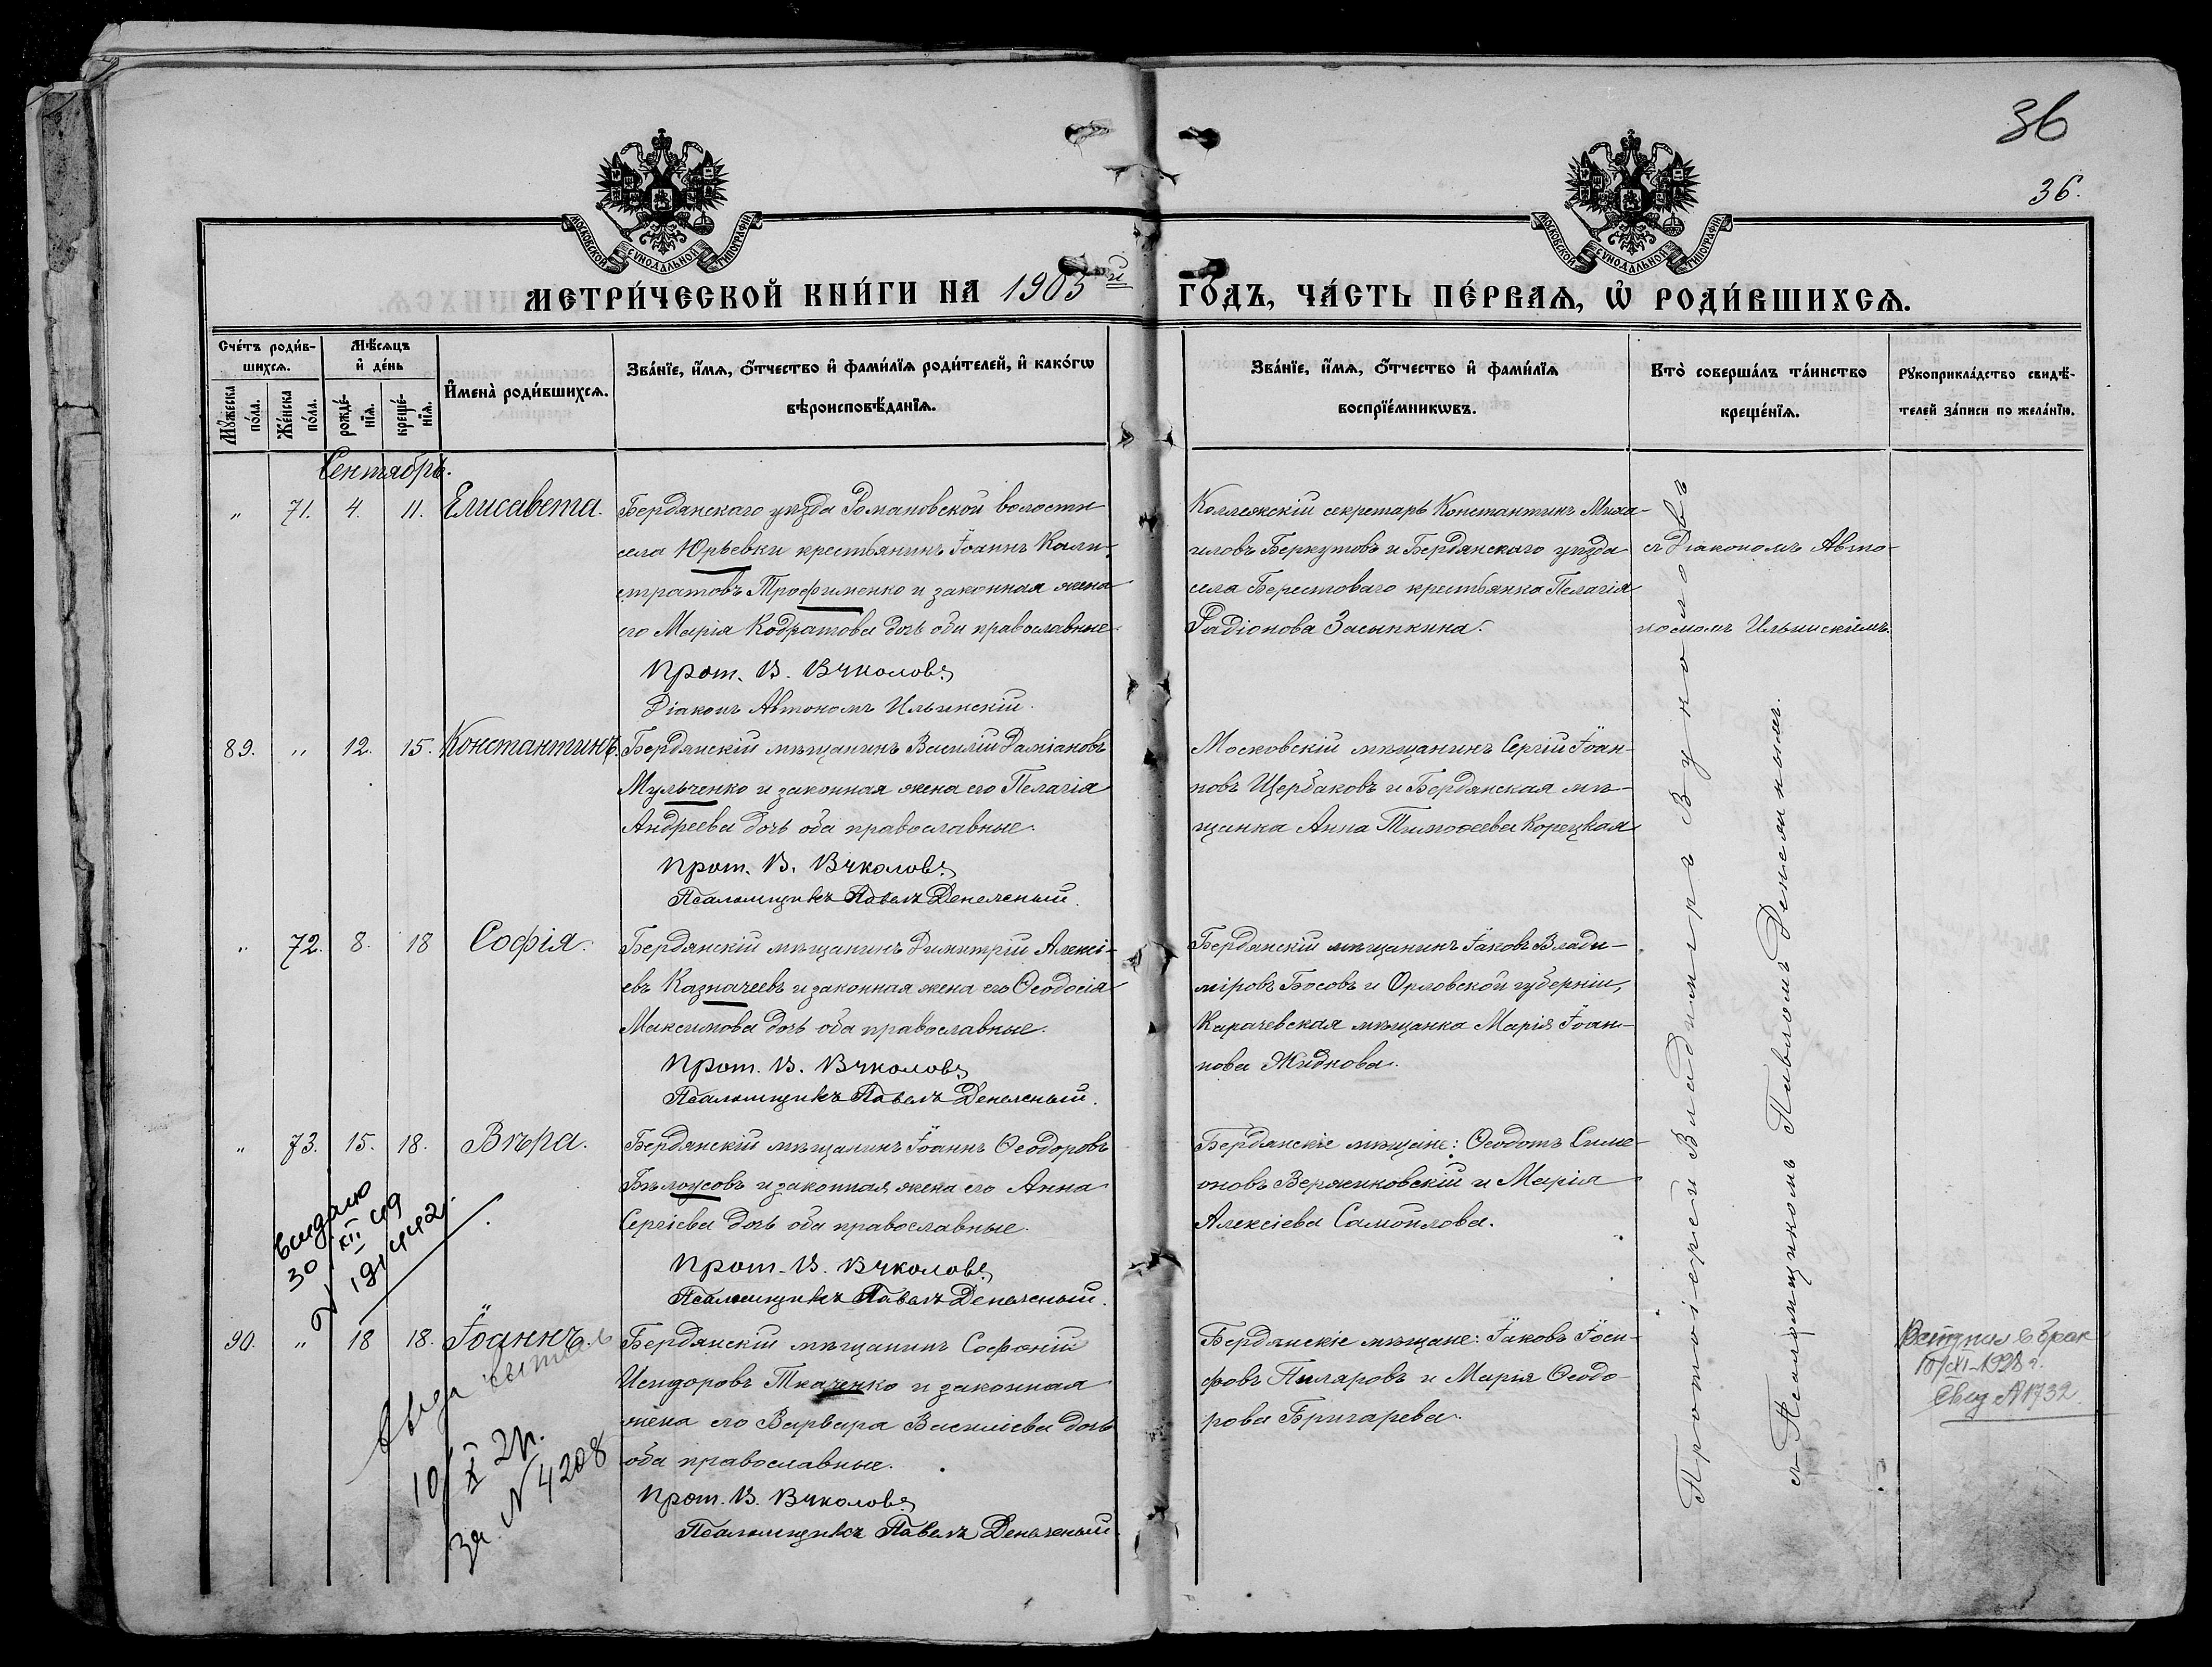 36
36.
МОСКОВСКОЙ СУНОДАЛЬНОЙ ТИПОГРАФІИ
МОСКОВСКОЙ СУНОДАЛЬНОЙ ТИПОГРАФІИ
МЕТРИ́ЧЕСКОЙ КНИ́ГИ НА 1903 й ГО́ДЪ, ЧА́СТЬ ПЕ́РВАѦ, Ѡ҆ РОДИ́ВШИХСѦ.
Сче́тъ роди́в-
шихсѧ.
Мꙋжеска по́ла.
Же́нска по́ла.
Мѣ́сѧцъ
и҆ де́нь
рожде́-
нїѧ.
креще́-
нїѧ.
И҆мена̀ роди́вшихсѧ.
Зва́нїе, и҆́мѧ, ѻ҆́тчество и҆ фами́лїѧ роди́телей, и҆ како́гѡ
вѣроисповѣ́данїѧ.
Зва́нїе, и҆́мѧ, ѻ҆́тчество и҆ фами́лїѧ
воспрїе́мникѡвъ.
Кто̀ соверша́лъ та́инство
креще́нїѧ.
Рꙋкоприкла́дство свидѣ́-
телей за́писи по жела́нїю.
Сентябрь.
" 71. 4. 11. Елисавета.
Бердянскаго уѣзда Романовской волости
села Юрьевки крестьянинъ Іоаннъ Кали-
стратовъ Трофименко и законная жена
его Марія Кодратова дочь оба православные.
Прот. В. Вуколовъ
Діаконъ Автономъ Ильинскій.
Коллежскій секретарь Константинъ Миха-
иловъ Беркутовъ и Бердянскаго уѣзда
села Берестоваго крестьянка Пелагія
Радіонова Засыпкина.
съ Діакономъ Авто-
номомъ Ильинскимъ.
89. " 12. 15. Константинъ.
Бердянскій мѣщанинъ Василій Даміановъ
Мульченко и законная жена его Пелагія
Андреева дочь оба православные.
Прот. В. Вуколовъ
Псаломщикъ Павелъ Денеженый.
Московскій мѣщанинъ Сергій Іоан-
новъ Щербаковъ и Бердянская мѣ-
щанка Анна Тимоѳеева Корецкая
" 72. 8. 18 Софія.
Бердянскій мѣщанинъ Димитрій Алексі-
евъ Казначеевъ и законная жена его Ѳеодосія
Максимова дочь оба православные.
Прот. В. Вуколовъ
Псаломщикъ Павелъ
Бердянскій мѣщанинъ Іаковъ Влади-
міровъ Босовъ и Орловской губерніи,
Карачевская мѣщанка Марія Іоан-
нова Жидкова.
" 73. 15. 18. Вѣра.
Бердянскій мѣщанинъ Іоаннъ Ѳеодоровъ
Бѣлоусовъ и законная жена его Анна
Сергіева дочь оба православные.
Прот. В. Вуколовъ
Псаломщикъ Павелъ
Бердянскіе мѣщане: Ѳеодотъ Симе-
оновъ Вержиковскій и Марія
Алексіева Самойлова.
видано
30 XII 49
N 191442
90. " 18 18. Іоаннъ.
Бердянскій мѣщанинъ Софоній
Исидоровъ Ткаченко и законная
жена его Варвара Василіева дочь
оба православные.
Прот. В. Вуколовъ
Псаломщикъ Павелъ
Бердянскіе мѣщане: Іаковъ Іоси-
фовъ Пиляровъ и Марія Ѳеодо-
рова Бригарева.
10/X 2 р.
за N 4208
Протоіерей Владимиръ Вуколовъ
съ Псаломщикомъ Павломъ
Вступил в брак
10/XI-1928 г.
свид N 1732